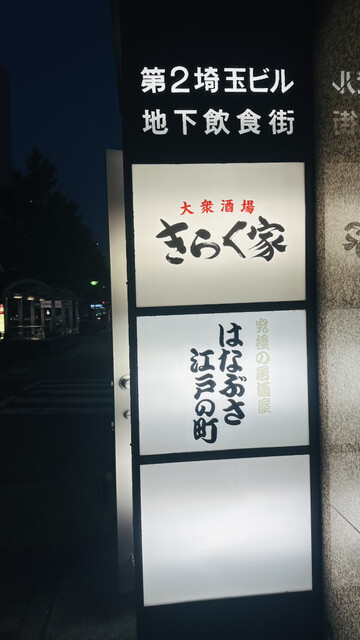 第2埼玉ビル
地下飲食街
大衆酒場
きらく家
究極の居酒屋
はなぶさ
江戸の町